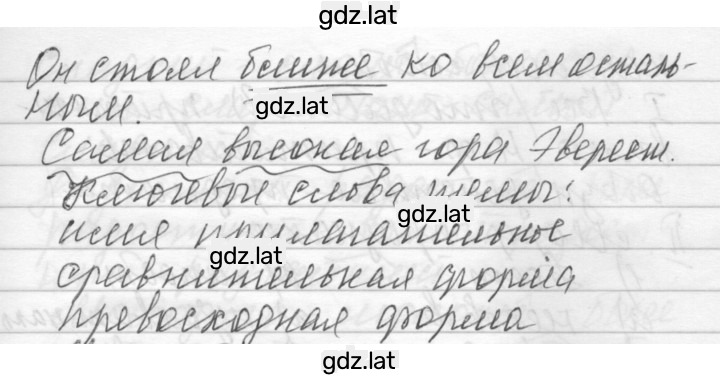 gdz.lat
Он стоял ближе ко всем осталь-
ным.
gdz.lat
Самая высокая гора Эверест.
Ключевые слова темы:
gdz.lat
имя прилагательное
gdz.lat
сравнительная форма
превосходная форма
gdz.lat